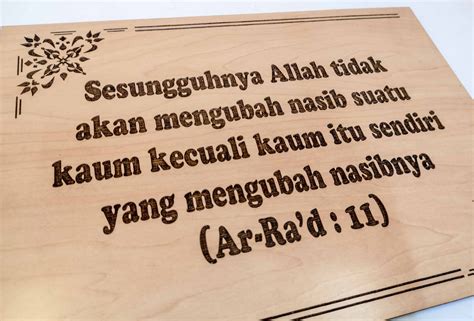 Sesungguhnya Allah tidak
akan mengubah nasib suatu
kaum kecuali kaum itu sendiri
yang mengubah nasibnya
(Ar-Ra'd : 11)